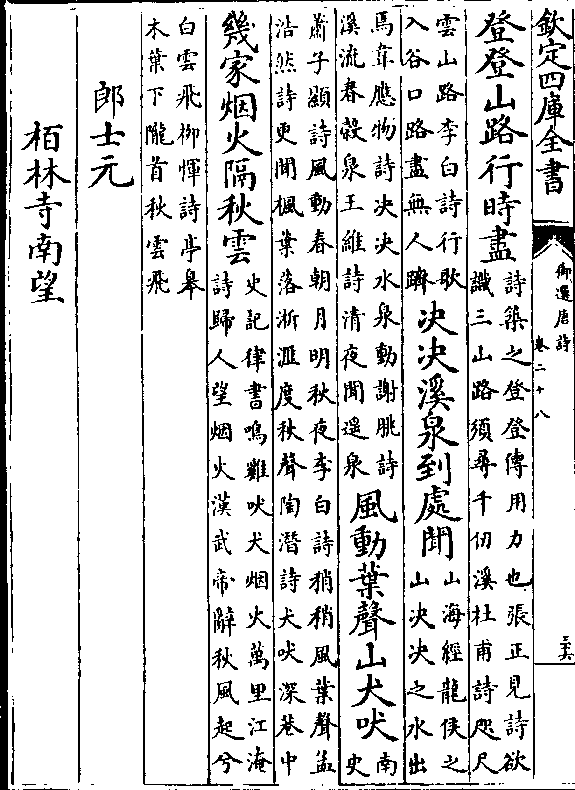 欽定四庫全書
御選唐詩
卷二十八
三六
登登山路行時盡
詩築之登登傳用力也張正見詩欲
識三山路須尋千仞溪杜甫詩咫尺
雲山路李白詩行歌
入谷口路盡無人躋
决决溪泉到處聞
山海經龍侯之
山决决之水出
馬韋應物詩决决水泉動謝朓詩
溪流春穀泉王維詩清夜聞遥泉
風動葉聲山犬吠
南
史
蕭子顯詩風動春朝月明秋夜李白詩稍稍風葉聲孟
浩然詩更聞楓葉落淅瀝度秋聲陶潛詩犬吠深巷中
幾家烟火隔秋雲
史記律書鳴雞吠犬烟火萬里江淹
詩歸人望烟火漢武帝辭秋風起兮
白雲飛柳惲詩亭皋
木葉下隴首秋雲飛
郎士元
栢林寺南望